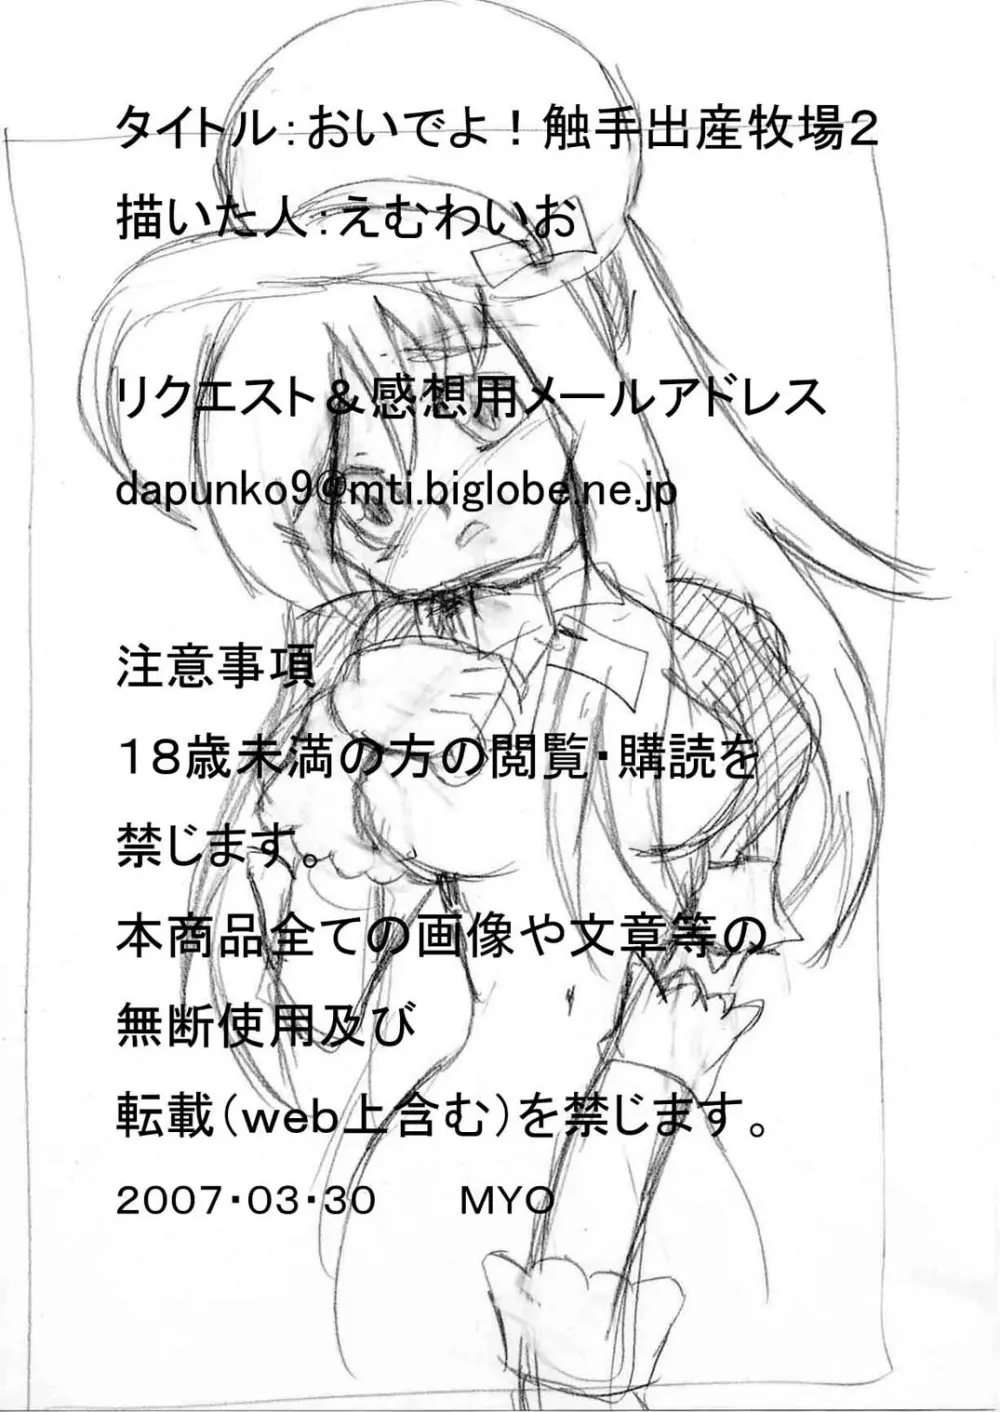 タイトル：おいでよ！触手出産牧場２
描いた人：えむわいお
リクエスト＆感想用メールアドレス
dapunko9@mti.biglobe.ne.jp
注意事項
１８歳未満の方の閲覧・購読を
禁じます。
本商品全ての画像や文章等の
無断使用及び
転載（ｗｅｂ上含む）を禁じます。
２００７・０３・３０　　ＭＹＯ